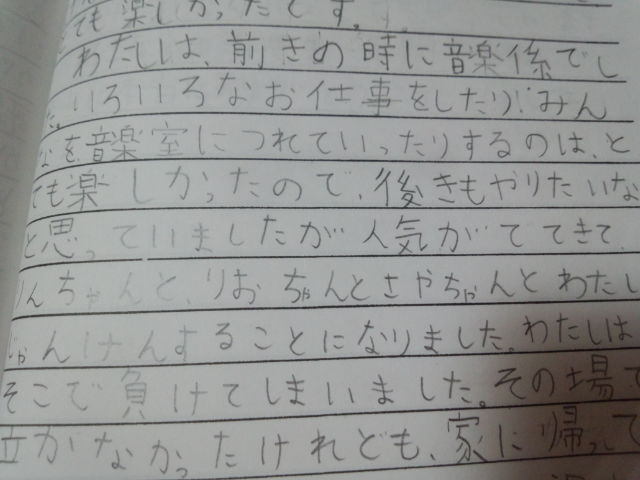 ても楽しかったです。
わたしは、前きの時に音楽係でし
た。いろいろなお仕事をしたり、みん
なを音楽室につれていったりするのは、と
ても楽しかったので、後きもやりたいな
と思っていましたが人気がでてきて、
りんちゃんと、りおちゃんとさやちゃんとわたし
じゃんけんすることになりました。わたしは
そこで負けてしまいました。その場で
立かなかったけれども、家に帰って